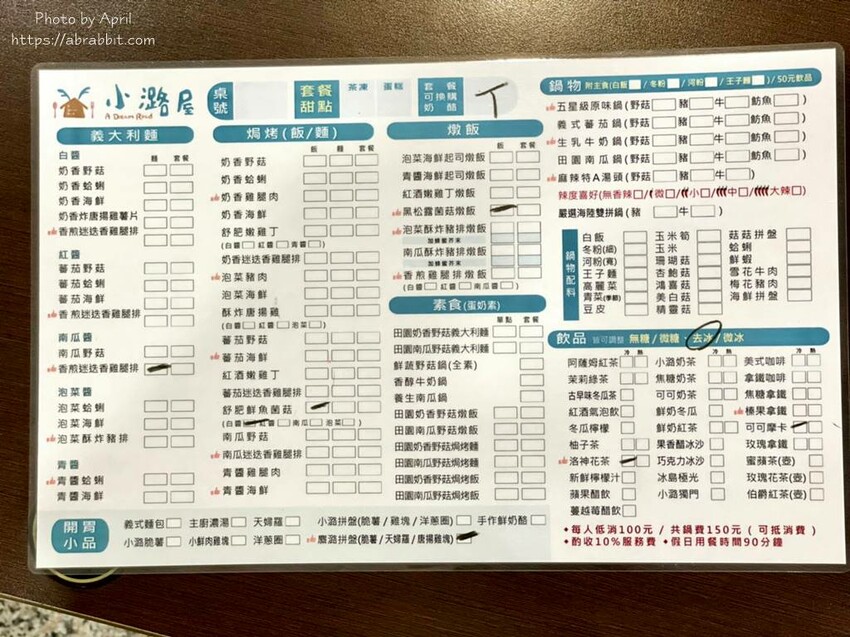 Photo by April
https://abrabbit.com
小潞屋
A Dream Road
桌號
套餐甜點
茶凍
蛋糕
套餐可換購奶酪
丁
義大利麵
麵 套餐
白醬
奶香野菇
奶香蛤蜊
奶香海鮮
奶香炸唐揚雞薯片
香煎迷迭香雞腿排
紅醬
蕃茄野菇
蕃茄蛤蜊
蕃茄海鮮
香煎迷迭香雞腿排
南瓜醬
南瓜野菇
香煎迷迭香雞腿排
泡菜醬
泡菜蛤蜊
泡菜海鮮
泡菜酥炸豬排
青醬
青醬蛤蜊
青醬海鮮
焗烤(飯/麵)
飯 麵 套餐
奶香野菇
奶香蛤蜊
奶香雞腿肉
奶香海鮮
舒肥嫩雞丁
(白醬 紅醬 青醬)
奶香迷迭香雞腿排
泡菜豬肉
泡菜海鮮
酥炸唐揚雞
(白醬 紅醬 泡菜)
蕃茄野菇
蕃茄海鮮
紅酒嫩雞丁
蕃茄迷迭香雞腿排
舒肥鮮魚菌菇
(白醬 紅醬 南瓜 泡菜)
南瓜野菇
南瓜迷迭香雞腿排
青醬雞腿肉
青醬海鮮
燉飯
飯 套餐
泡菜海鮮起司燉飯
青醬海鮮起司燉飯
紅酒嫩雞丁燉飯
黑松露菌菇燉飯
泡菜酥炸豬排燉飯
加蜂蜜芥末
南瓜酥炸豬排燉飯
加蜂蜜芥末
香煎雞腿排燉飯
(白醬 紅醬 南瓜)
素食(蛋奶素)
單點 套餐
田園奶香野菇義大利麵
田園南瓜野菇義大利麵
鮮蔬野菇鍋(全素)
香醇牛奶鍋
養生南瓜鍋
田園奶香野菇燉飯
田園南瓜野菇燉飯
田園奶香野菇焗烤麵
田園南瓜野菇焗烤麵
田園奶香野菇焗烤飯
田園南瓜野菇焗烤飯
鍋物 附主食(白飯/冬粉/河粉/王子麵)/50元飲品
五星級原味鍋(野菇 豬 牛 魴魚)
義式蕃茄鍋(野菇 豬 牛 魴魚)
生乳牛奶鍋(野菇 豬 牛 魴魚)
田園南瓜鍋(野菇 豬 牛 魴魚)
麻辣特A湯頭(野菇 豬 牛)
辣度喜好(無香辣 微 小 中 大辣)
嚴選海陸雙拼鍋(豬 牛)
鍋物配料
白飯 玉米筍 菇菇拼盤
冬粉(細) 玉米 蛤蜊
河粉(寬) 珊瑚菇 鮮蝦
王子麵 杏鮑菇 雪花牛肉
高麗菜 鴻喜菇 梅花豬肉
青菜(季節) 美白菇 海鮮拼盤
豆皮 精靈菇
飲品 皆可調整 無糖/微糖·去冰/微冰
冷 熱 冷 熱 冷 熱
阿薩姆紅茶 小潞奶茶 美式咖啡
茉莉綠茶 焦糖奶茶 拿鐵咖啡
古早味冬瓜茶 可可奶茶 焦糖拿鐵
紅酒氣泡飲 鮮奶冬瓜 榛果拿鐵
冬瓜檸檬 鮮奶紅茶 可可摩卡
柚子茶 果香醋冰沙 玫瑰拿鐵
洛神花茶 巧克力冰沙 蜜蘋茶(壺)
新鮮檸檬汁 冰島極光 玫瑰花茶(壺)
蘋果醋飲 小潞獨門 伯爵紅茶(壺)
蔓越莓醋飲
開胃小品
義式麵包 主廚濃湯 天婦羅 小潞拼盤(脆薯/雞塊/洋蔥圈) 手作鮮奶酪
小潞脆薯 小鮮肉雞塊 洋蔥圈 麋潞拼盤(脆薯/天婦羅/唐揚雞塊)
◆每人低消100元 / 共鍋費150元 (可抵消費)
◆酌收10%服務費 ◆假日用餐時間90分鐘